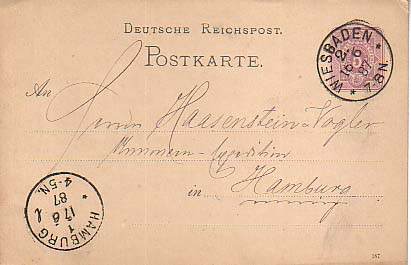 DEUTSCHE REICHSPOST.
POSTKARTE.
WIESBADEN
2
16 6
87
7-8N.
An
Herren Haasenstein & Vogler
Annoncen-Expedition
in Hamburg
HAMBURG
1
17 6
87
4-5N.
187